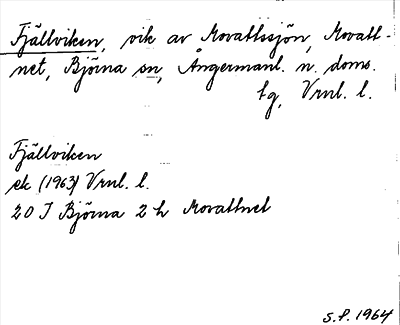 Fjällviken, vik av Movattssjön, Movatt-
net, Björna sn, Ångermanl. n. doms.
tg, Vrnl. l.
Fjällviken
ek (1963) Vrnl. l.
20 I Björna 2 h Movattnet
S.P. 1964